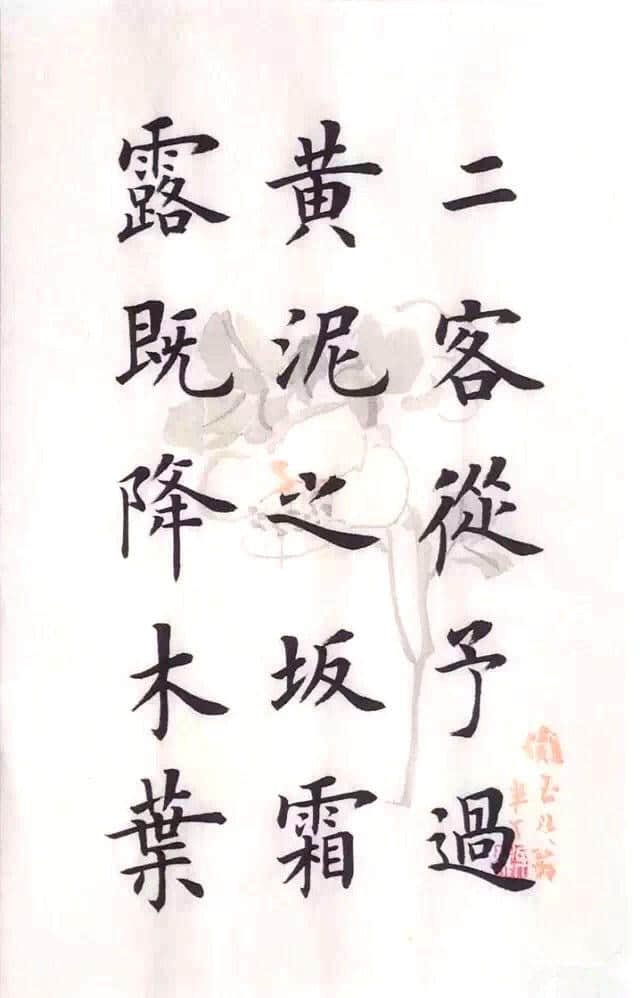 二客從予過
黄泥之坂霜
露既降木葉